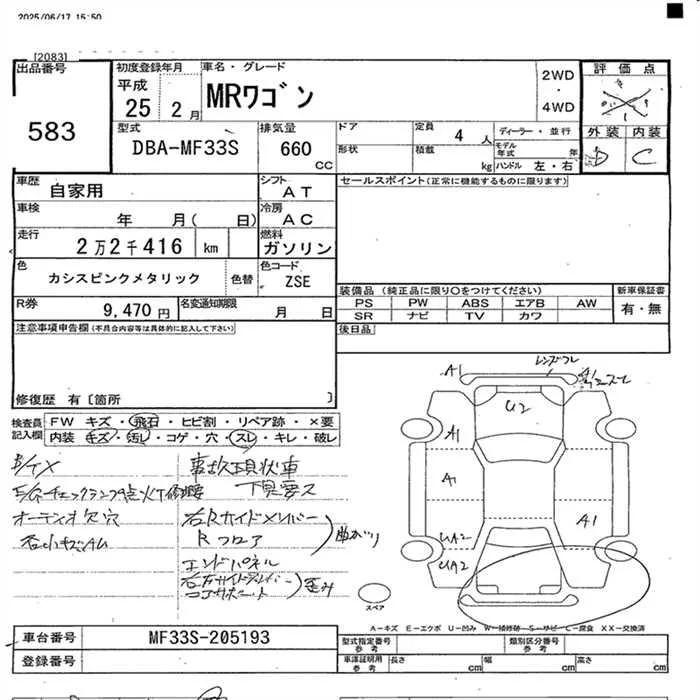 2025/06/17 15:50
[2083]
出品番号
583
初度登録年月
平成
25 2 月
車名・グレード
MRワゴン
2WD
・
4WD
評価点
外装 内装
D C
型式
DBA-MF33S
排気量
660
CC
ドア
形状
定員 4 人
積載 kg
ディーラー・並行
モデル年式 年
ハンドル 左・右
車歴
自家用
シフト
AT
セールスポイント(正常に機能するものに限ります)
車検
年 月( 日)
冷房
AC
走行
2万2千416 km
燃料
ガソリン
色
カシスピンクメタリック
色替
色コード
ZSE
装備品 (純正品に限り○をつけてください)
PS PW ABS エアB AW
SR ナビ TV カワ
新車保証書
有・無
R券
9,470円
名変通知期限
月 日
後日品
注意事項申告欄(不具合内容等は具体的に記入して下さい)
修復歴 有〔箇所 〕
検査員記入欄
FW キズ・飛石・ヒビ割・リペア跡・×要
内装 キズ・汚レ・コゲ・穴・スレ・キレ・破レ
事故現状車
下見要ス
エンジンチェックランプ点灯修理要
オーディオ欠穴
右Rサイドメンバー
Rフロア
曲がり
エンドパネル
歪み
A1
レンズワレ
A1
U2
A1
A1
A1
UA2
UA2
スペア
A-キズ E-エクボ U-凹み W-補修跡 S-サビ C-腐食 XX-交換済
車台番号
MF33S-205193
登録番号
型式指定番号
参考
類別区分番号
参考
車庫証明用
参考
長さ cm
幅 cm
高さ cm